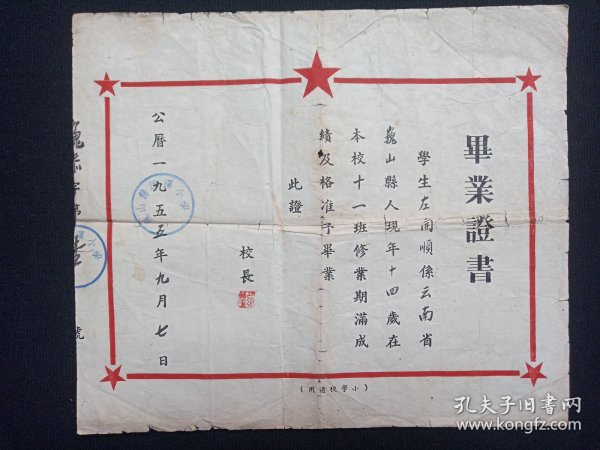 畢業證書
學生左開順係云南省
巍山縣人現年十四歲在
本校十一班修業期滿成
績及格准予畢業
此證
校長
公曆一九五五年九月七日
號
(小學校適用)
孔夫子旧书网
www.kongfz.com